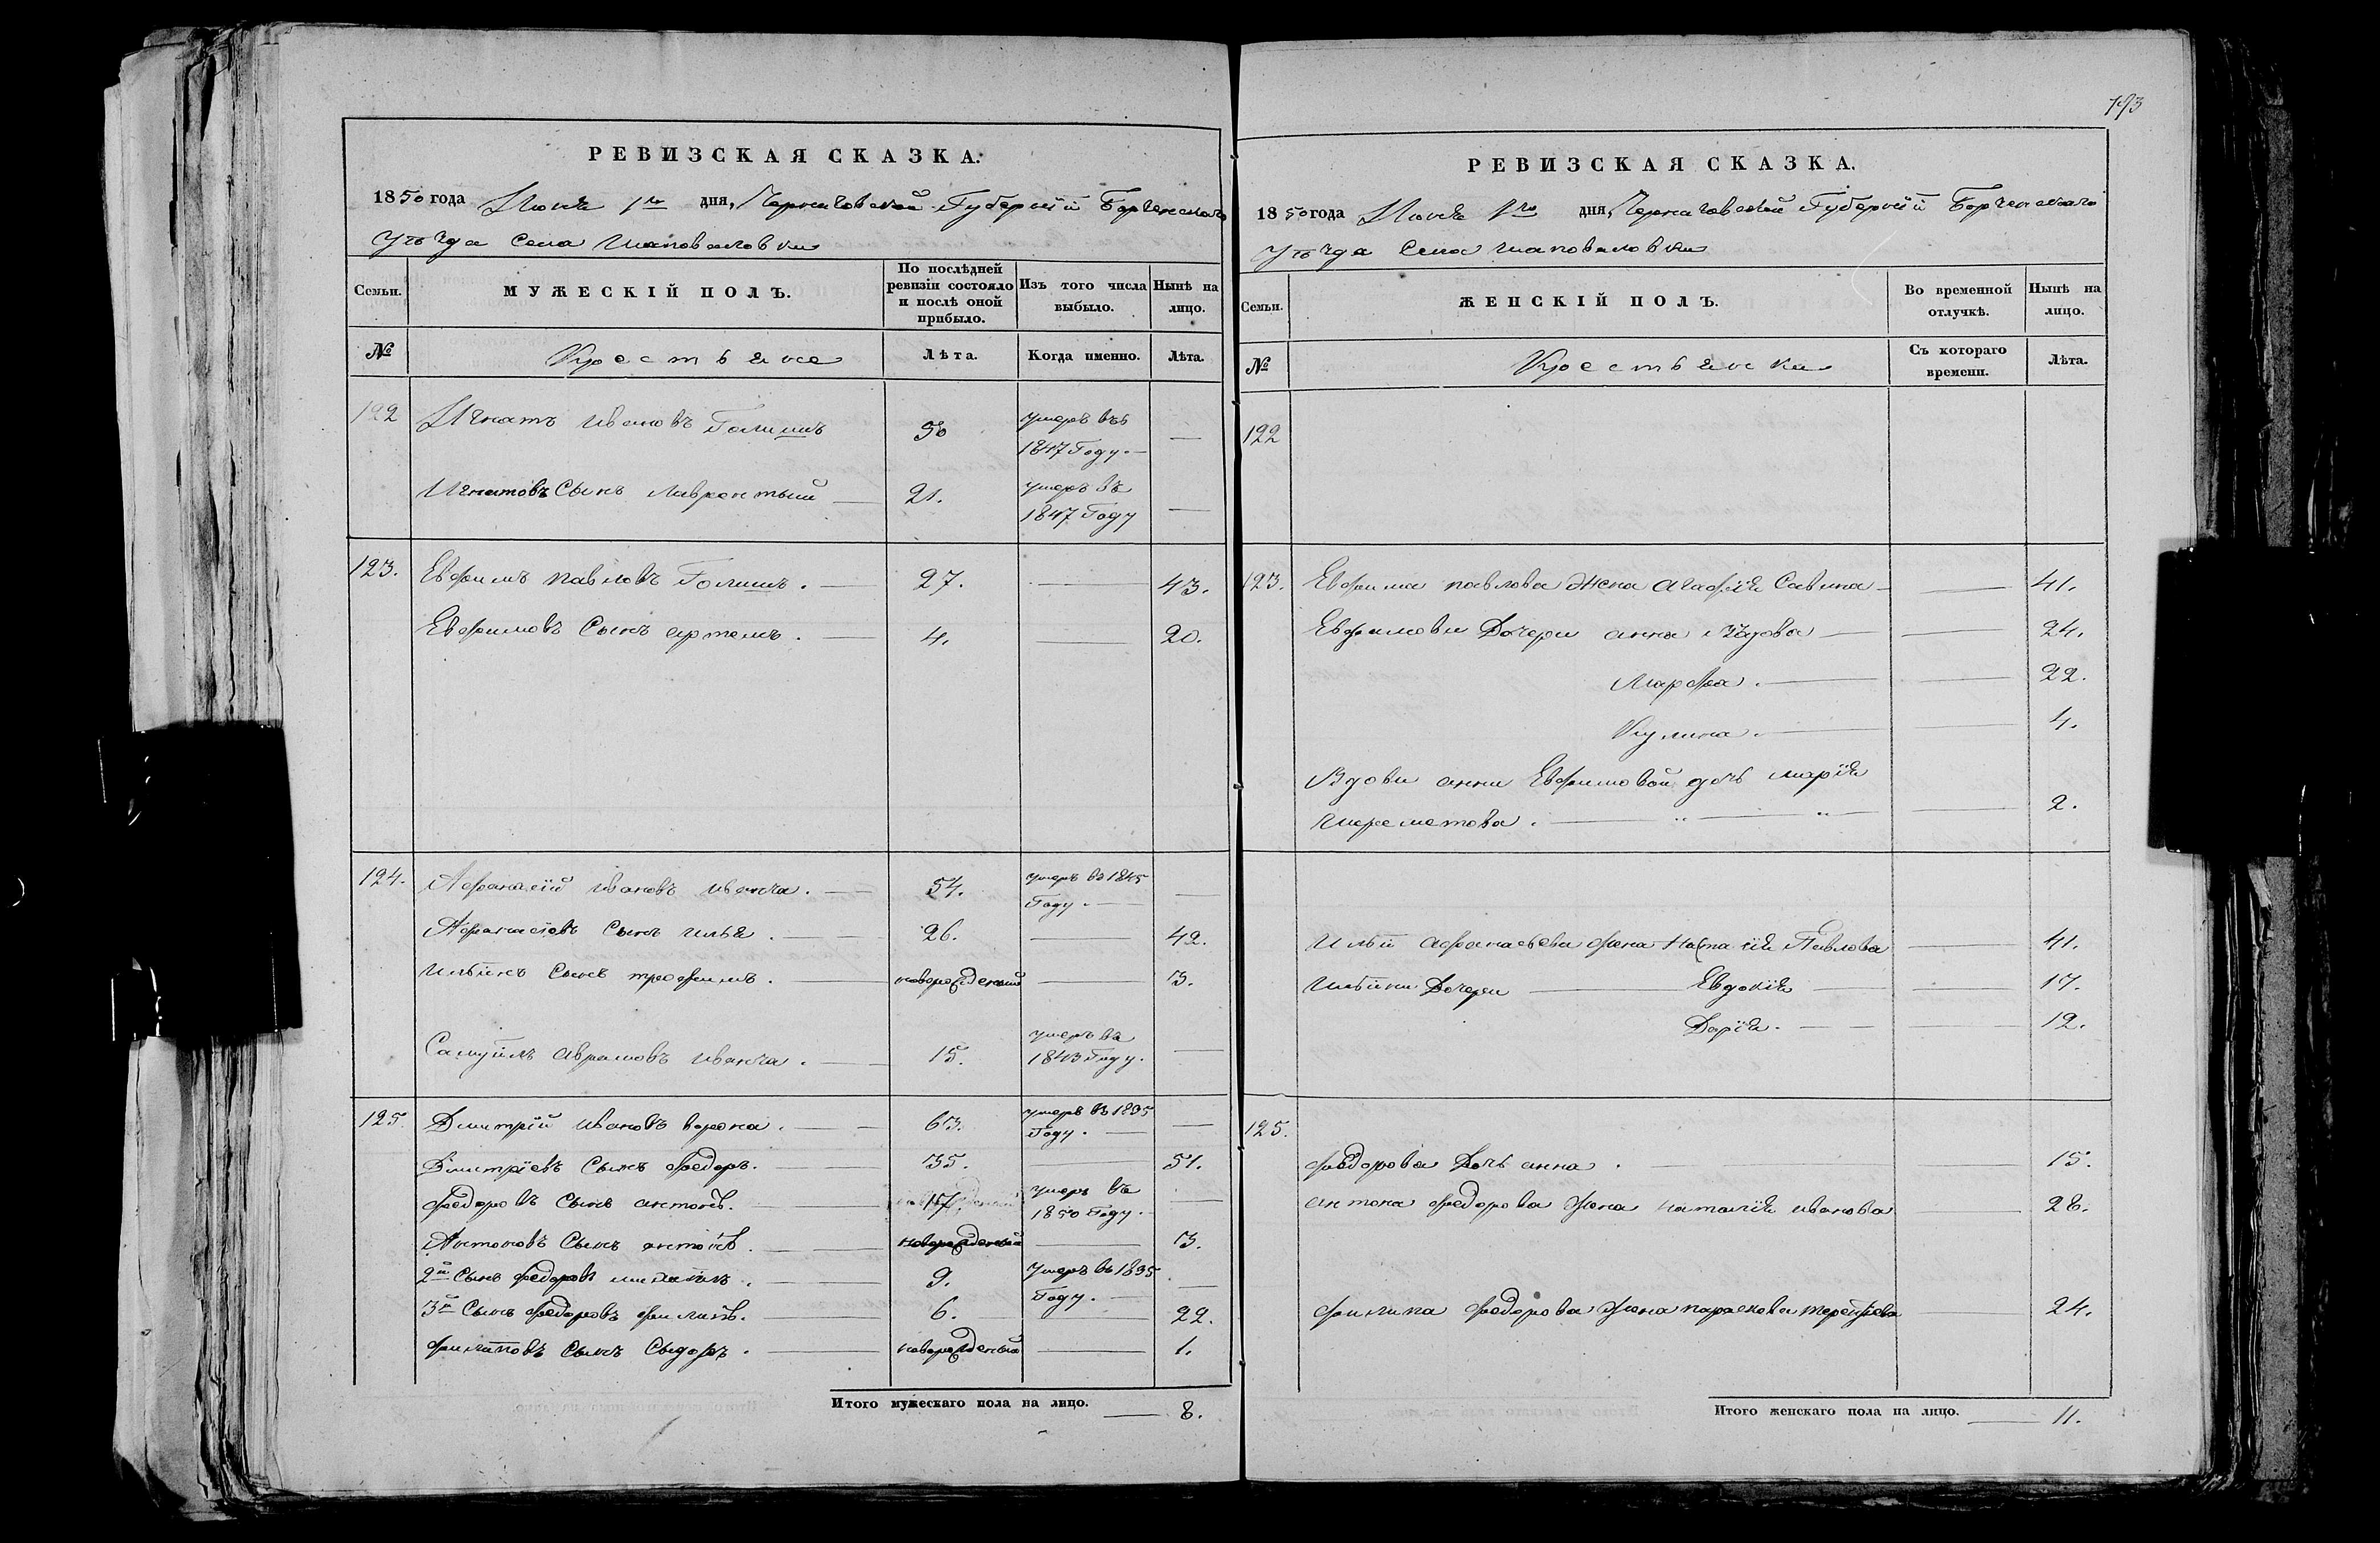 РЕВИЗСКАЯ СКАЗКА.
1850 года Июня 1го дня, Черниговской Губерніи Борзенскаго
Уѣзда Села Шаповаловки
Семьи.
МУЖЕСКІЙ ПОЛЪ.
По послѣдней ревизіи состояло и послѣ оной прибыло.
Изъ того числа выбыло.
Нынѣ на лицо.
№
Крестьяне
Лѣта.
Когда именно.
Лѣта.
122 Игнатъ Ивановъ Голишъ 50 умеръ въ 1847 Году. —
Игнатовъ Сынъ Лаврентьий — 21. умеръ въ 1847 Году —
123. Евфимъ павловъ Голишъ. — 27. — 43.
Евфимовъ Сынъ артемъ. — 4. — 20.
124. Афанасій ивановъ ивенча. — 54. умеръ въ 1845 Году. — —
Афанасіевъ Сынъ илья. — 26. — 42.
Ильинъ Сынъ трофимъ. — новорожденый — 3.
Самуйлъ аврамовъ ивенча. — 15. умеръ въ 1843 Году. —
125. Дмитрій ивановъ ворона. — 63. умеръ въ 1835 Году. — —
Дмитріевъ Сынъ федоръ. — 35. — 51.
федоровъ Сынъ антонъ. — 17. умеръ въ 1850 Году. —
Антоновъ Сынъ антонъ. — новорожденый — 3.
2й Сынъ федоровъ михаилъ. 9. Умеръ въ 1835 Году. — —
3й Сынъ федоровъ филипъ. — 6. — 22.
филиповъ Сынъ Сыдоръ. — новорожденый — 1.
Итого мужескаго пола на лицо. — 8.
193
РЕВИЗСКАЯ СКАЗКА.
1850 года Июня 1го дня, Черниговской Губерніи Борзенскаго
Уѣзда Села Шаповаловки
Семьи.
ЖЕНСКІЙ ПОЛЪ.
Во временной отлучкѣ.
Нынѣ на лицо.
№
Крестьянки
Съ котораго времени.
Лѣта.
122
123. Евфима павлова жена агафія Савина — — 41.
Евфимови Дочери анна вдова — — 24.
Марфа. — — 22.
Кулина. — — 4.
Вдови анни Евфимовой дочь марія
Шереметова. — " — " — — 2.
Ильи афанасьева жена Настасія Павлова — 41.
Ильини Дочери — Евдокія — — 17.
Дарія. — — — 12.
125.
федорова Дочь анна. — — 15.
антона федорова жена наталія иванова — 28.
филипа федорова жена парасковія терентіева — 24.
Итого женскаго пола на лицо. — 11.